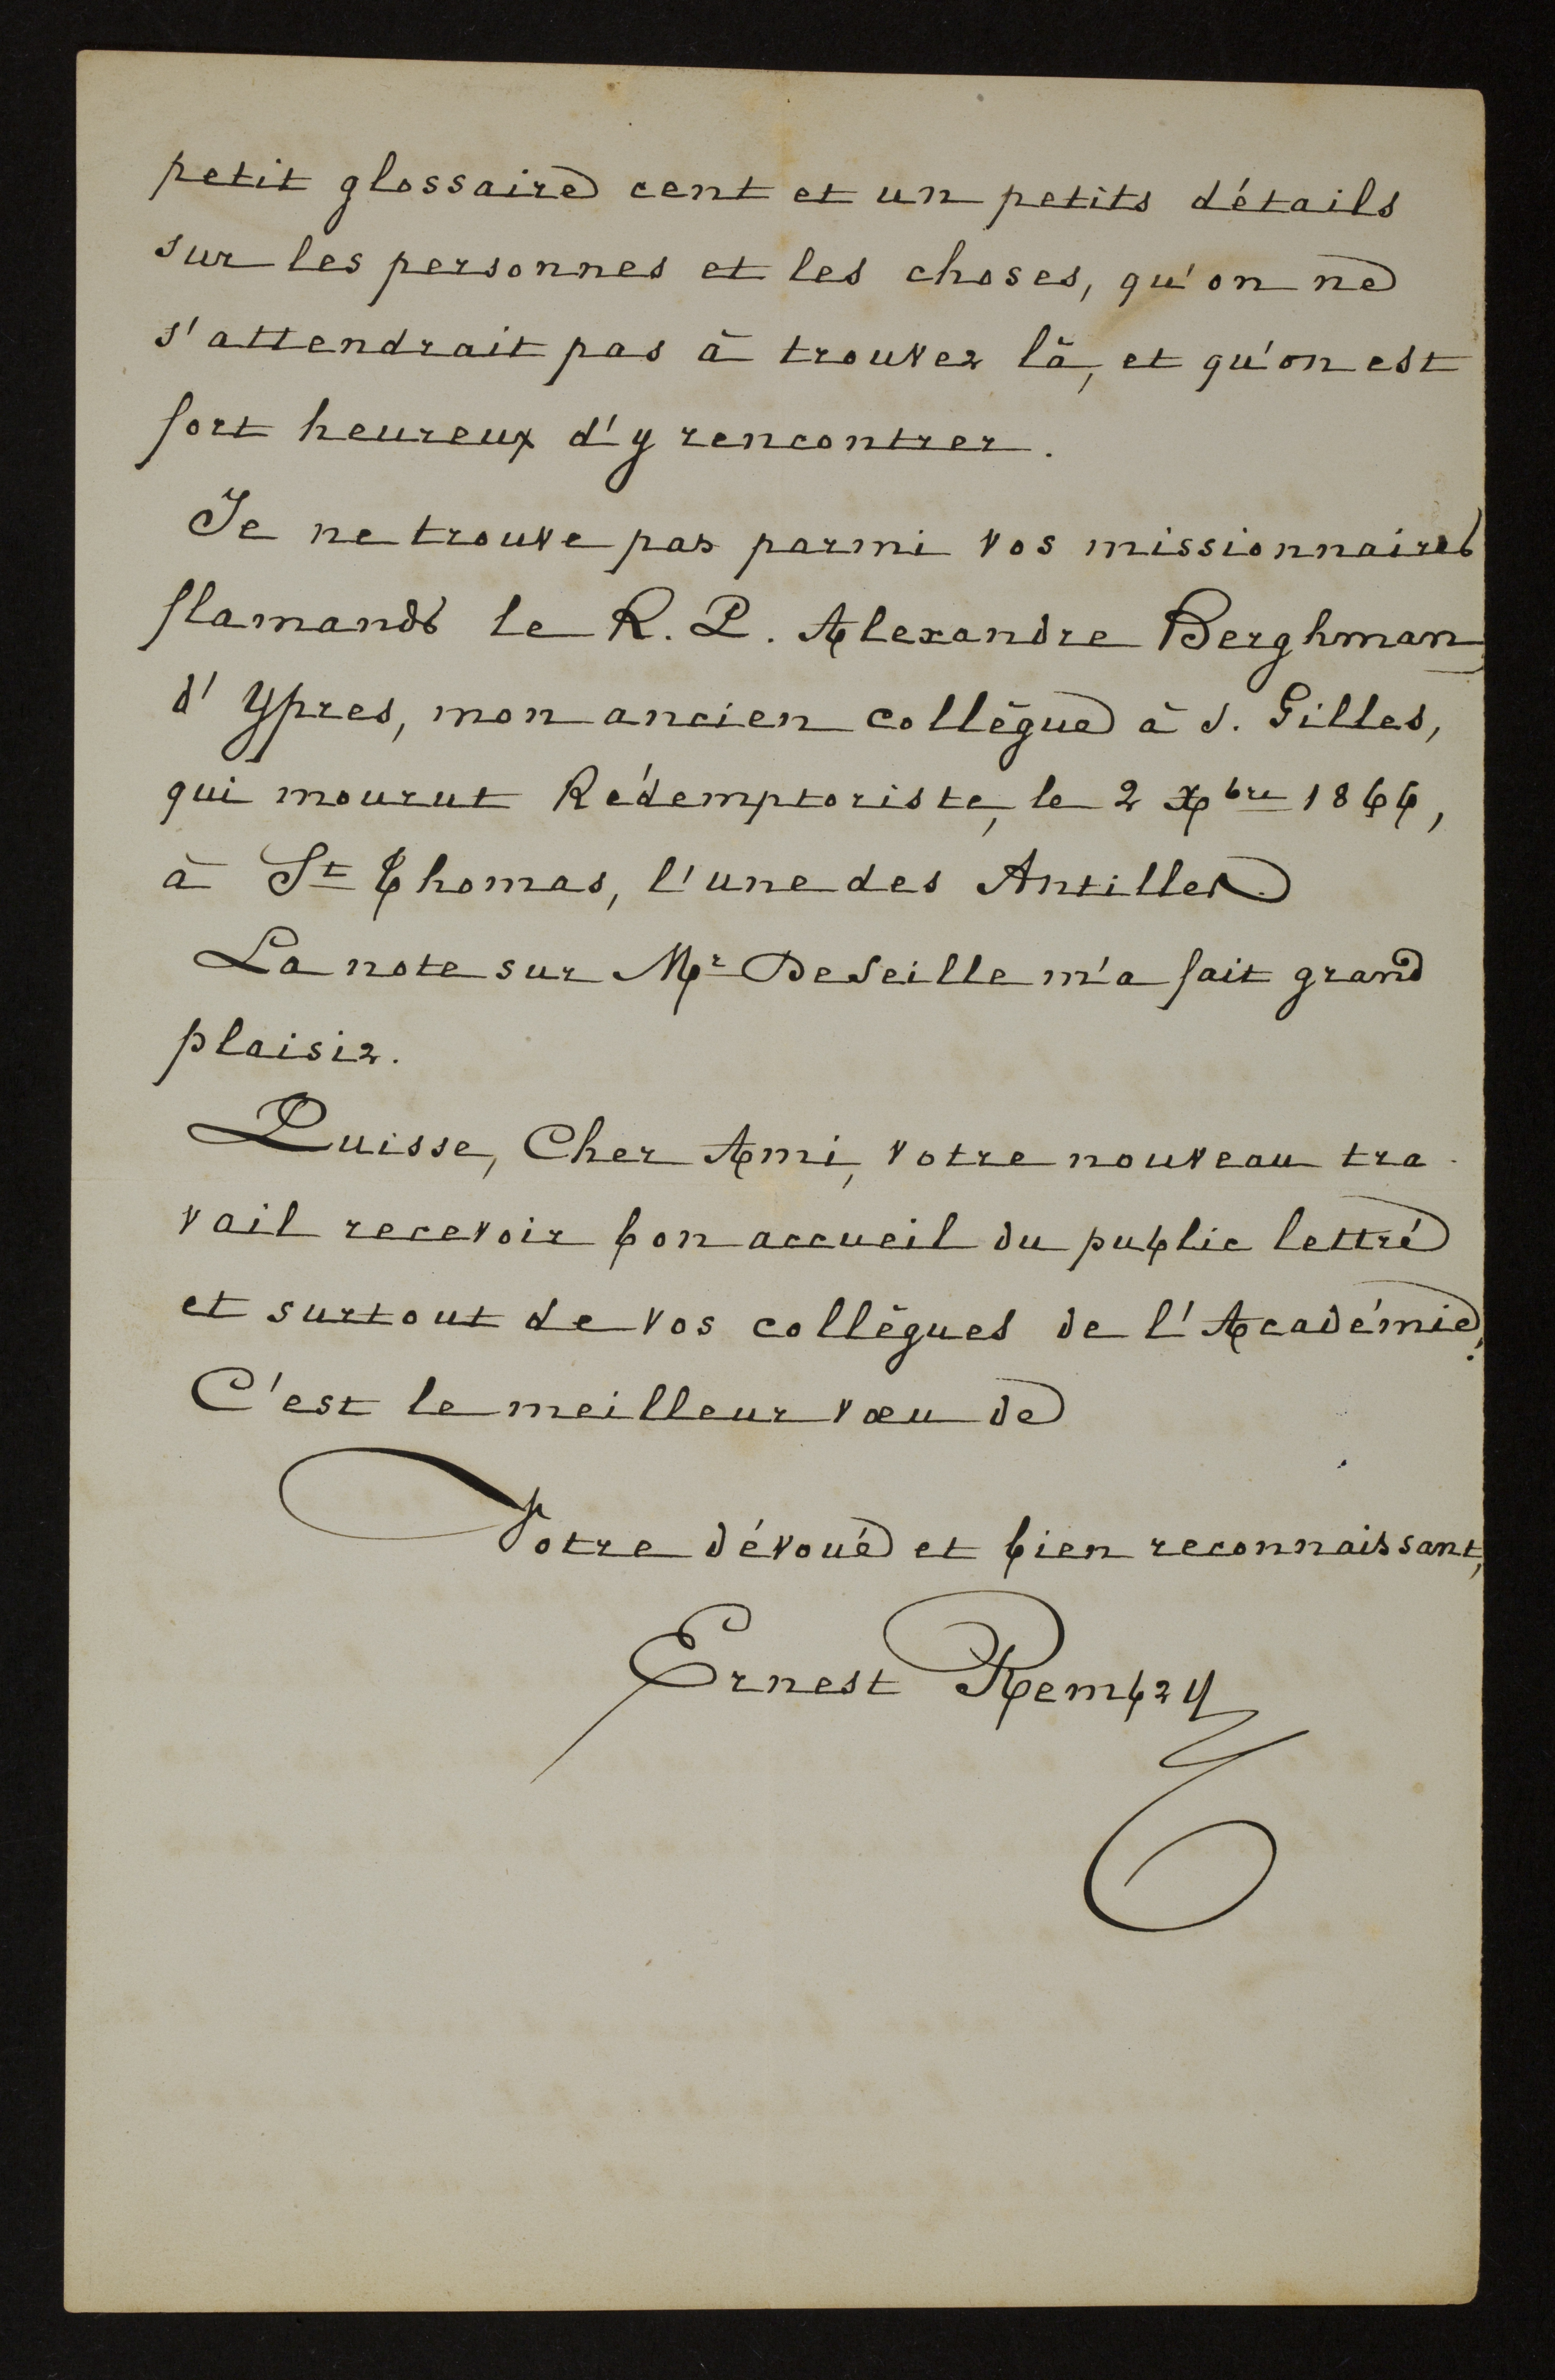 petit glossaire cent et un petits détails
sur les personnes et les choses, qu'on ne
s'attendrait pas à trouver là, et qu'on est
fort heureux d'y rencontrer.
Je ne trouve pas parmi vos missionnaires
flamands le R. P. Alexandre Berghman
d'Ypres, mon ancien collègue à S. Gilles,
qui mourut Rédemptoriste, le 2 Xbre 1866,
à St Thomas, l'une des Antilles.
La note sur Mr DeSeille m'a fait grand
plaisir.
Puisse, Cher Ami, votre nouveau tra-
vail recevoir bon accueil du public lettré
et surtout de vos collègues de l'Académie.
C'est le meilleur vœu de
Votre dévoué et bien reconnaissant,
Ernest Rembry